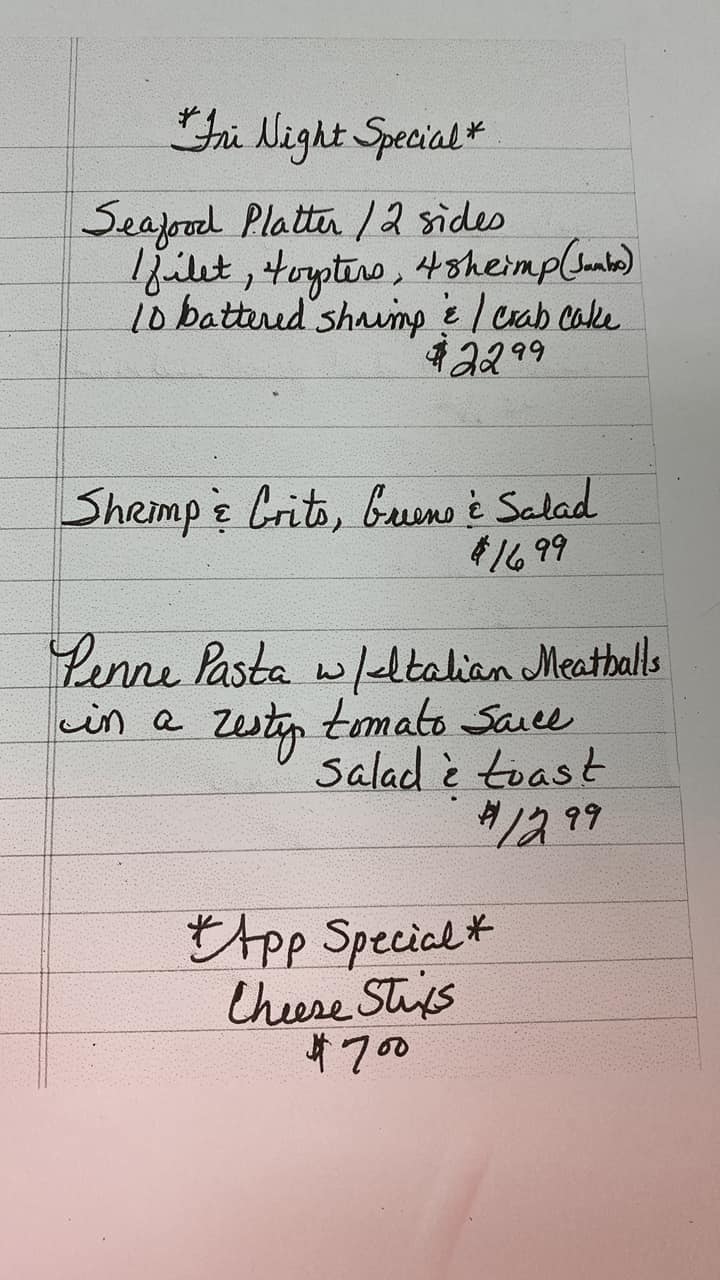 *Fri Night Special*
Seafood Platter / 2 sides
1 filet, 4 oysters, 4 shrimp (Jumbo)
10 battered shrimp & 1 crab cake
$22.99
Shrimp & Grits, Greens & Salad
$16.99
Penne Pasta w/ Italian Meatballs
in a zesty tomato sauce
salad & toast
$12.99
*App Special*
Cheese Stixs
$7.00